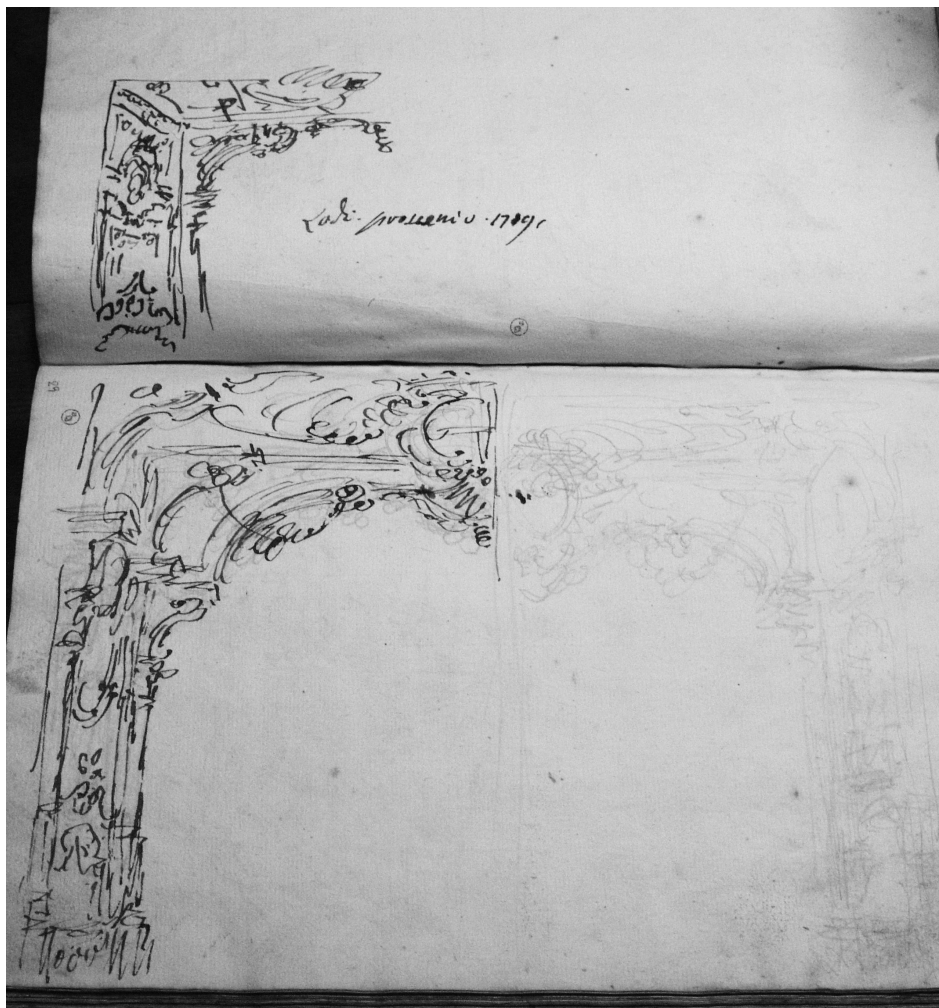 Lodi. proscenio. 1789.
29